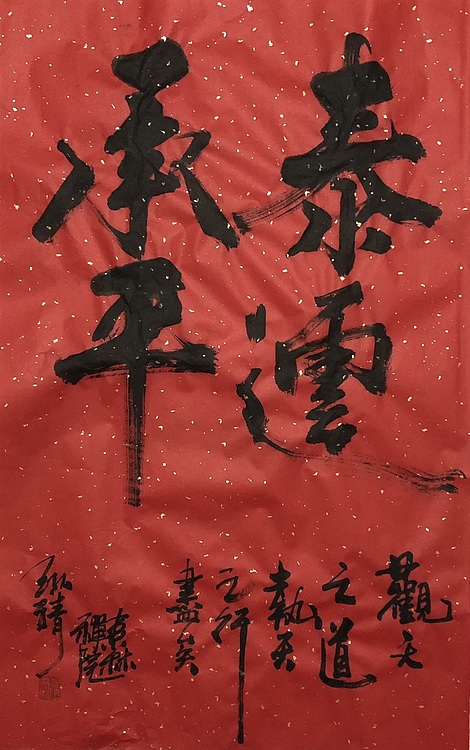 泰運
承平
觀天
之道
執天
之行
盡矣
吉林